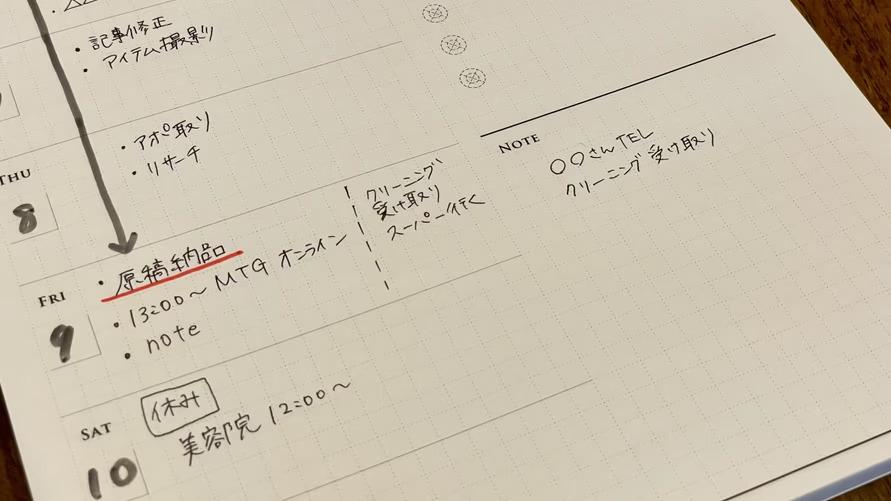 ・記事修正
・アイテム撮影
THU
8
・アポ取り
・リサーチ
FRI
9
・原稿納品
・13:00〜 MTG オンライン
・note
クリーニング
受け取り
スーパー行く
SAT
10
休み
美容院 12:00〜
NOTE
〇〇さんTEL
クリーニング 受け取り